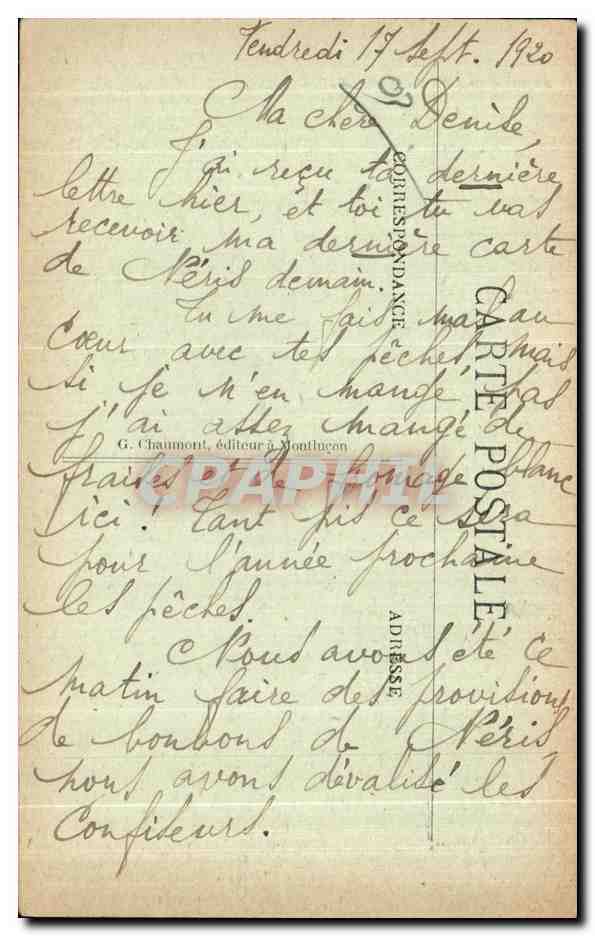 Vendredi 17 Sept. 1920
03
Ma chère Denise,
J'ai reçu ta dernière
lettre hier, et toi tu vas
recevoir ma dernière carte
de Néris demain.
Tu me fais mal au
cœur avec tes pêches, mais
si je n'en mange pas
j'ai assez mangé de
fraises et de fromage blanc
ici ! Tant pis ce sera
pour l'année prochaine
les pêches.
Nous avons été ce
matin faire des provisions
de bonbons de Néris,
nous avons dévalisé les
Confiseurs.
CORRESPONDANCE
CARTE POSTALE
ADRESSE
G. Chaumont, éditeur à Montluçon
CPAPHIL